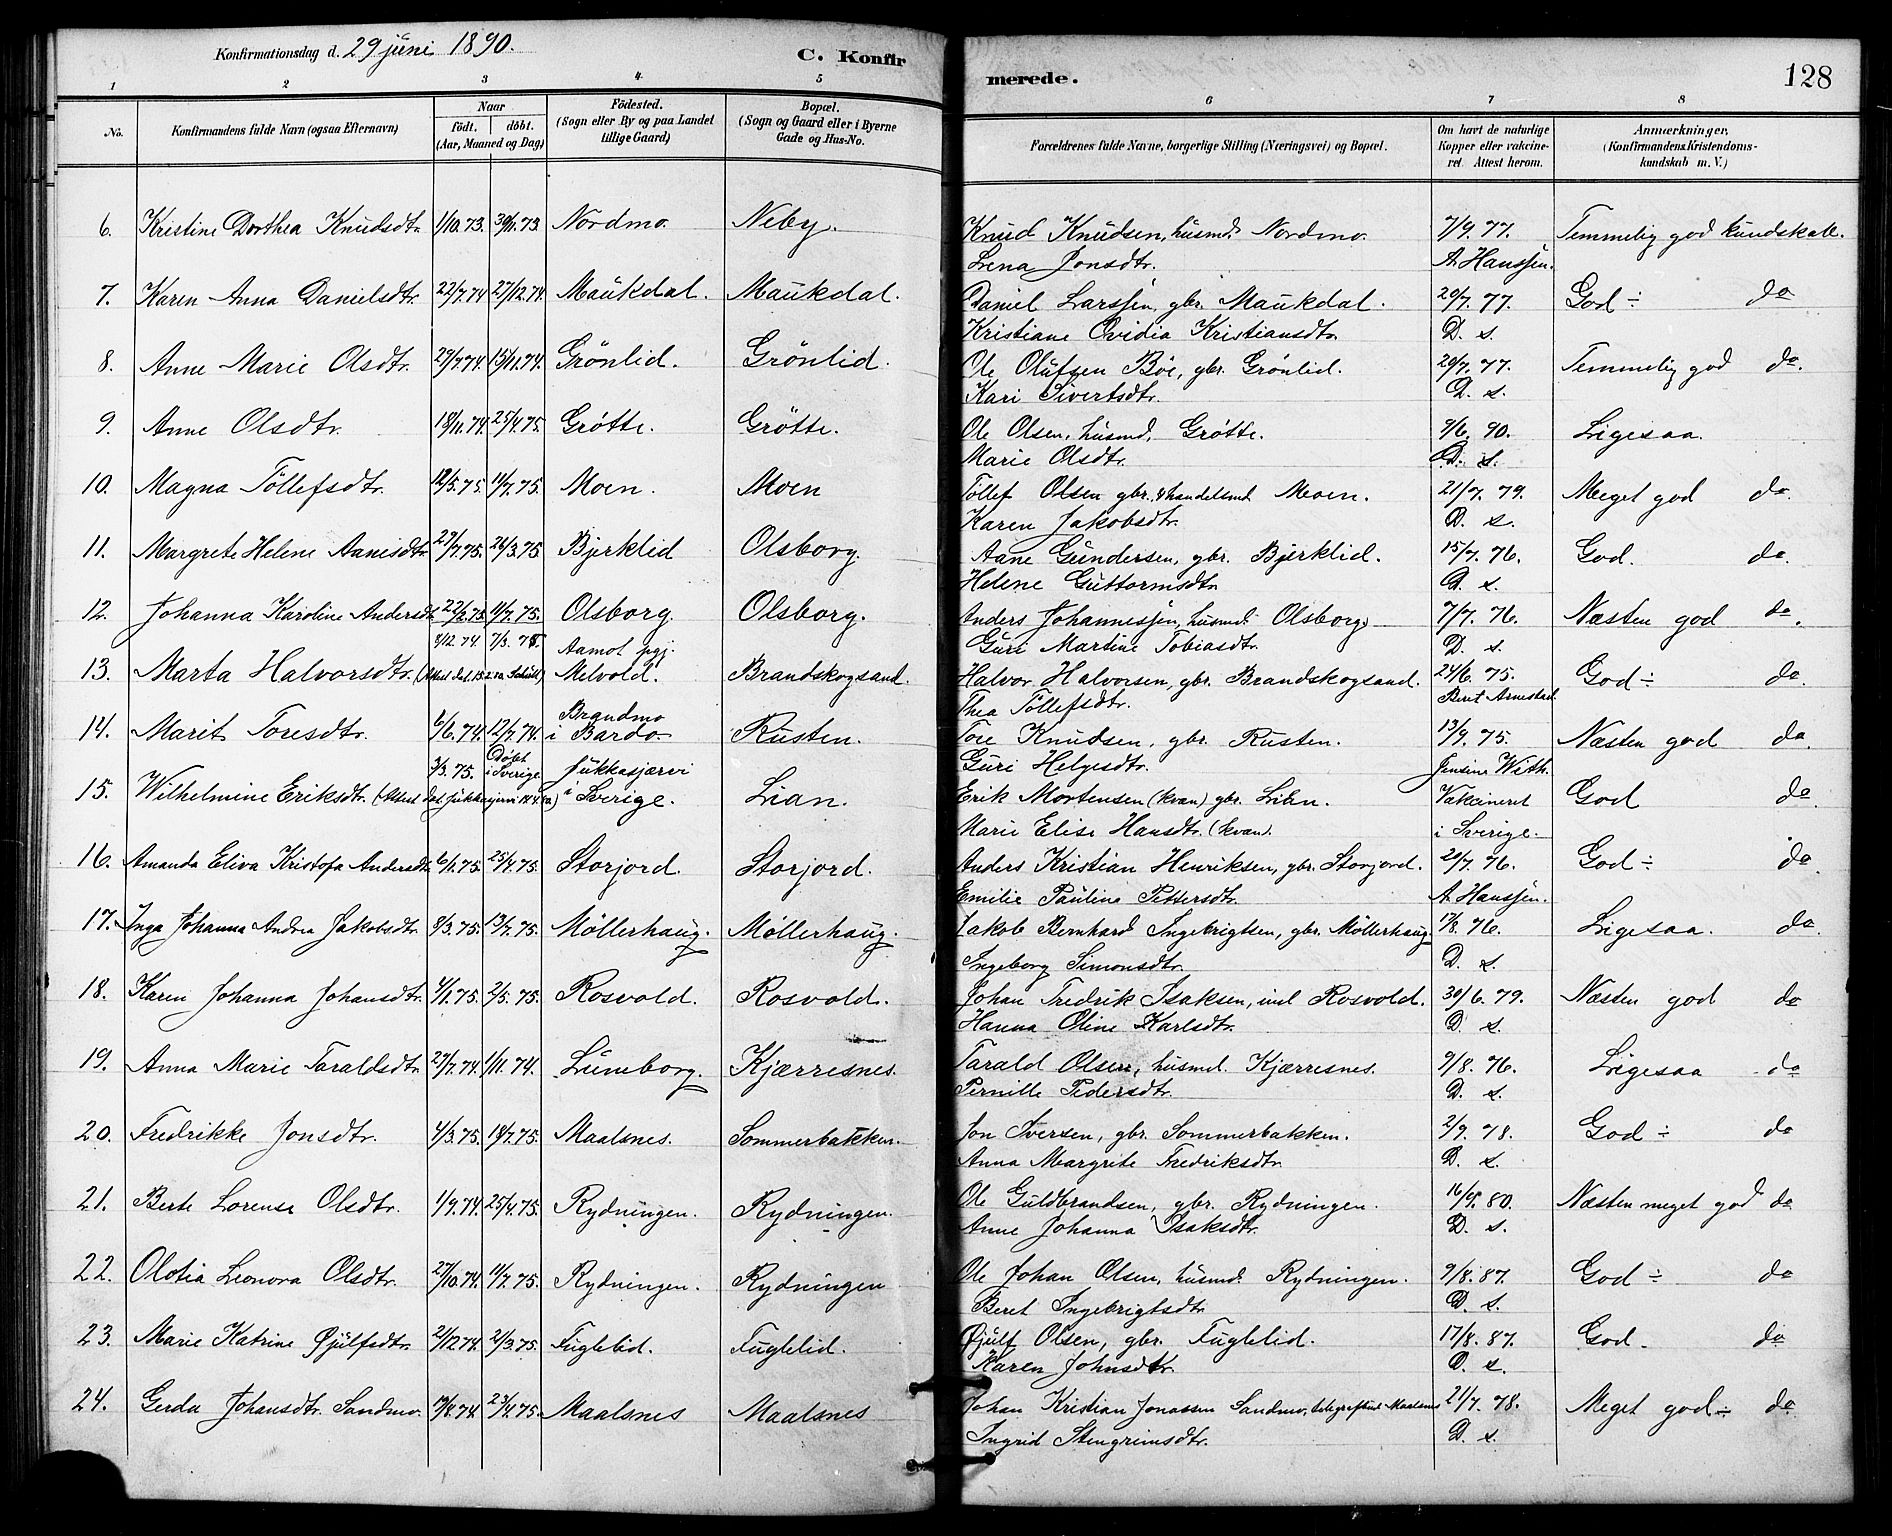 Konfirmationsdag d. 29 juni 1890.
C. Konfirmerede.
128
1 2 3 4 5 6 7 8
No.
Konfirmandens fulde Navn (ogsaa Efternavn)
Naar
födt. döbt.
(Aar, Maaned og Dag)
Födested.
(Sogn eller By og paa Landet
tillige Gaard)
Bopæl.
(Sogn og Gaard eller i Byerne
Gade og Hus-No.
Forældrenes fulde Navne, borgerlige Stilling (Næringsvei) og Bopæl.
Om havt de naturlige
Kopper eller vakcine-
ret. Attest herom.
Anmærkninger,
(Konfirmandens Kristendoms-
kundskab m. V.)
6. Kristine Dorthea Knudsdtr. 1/10.73. 30/11.73. Nordmo. Neby. Knud Knudsen, husmd. Nordmo. 7/9. 77. Temmelig god kundskab.
Lena Jonsdtr. A. Hanssen.
7. Karen Anna Danielsdtr. 22/7.74 27/12.74. Maukdal. Maukdal. Daniel Larssen, gbr. Maukdal. 20/7. 77. God ÷ do
Kristiane Ovidia Kristiansdtr. D. s.
8. Anne Marie Olsdtr. 29/7.74. 15/11.74. Grönlid. Grönlid. Ole Olufsen Böe, gbr. Grönlid. 20/7. 77. Temmelig god do.
Kari Sivertsdtr. D. s.
9. Anne Olsdtr. 18/11.74. 25/4.75. Grötte. Grötte. Ole Olsen, husmd. Grötte. 9/6. 90. Ligesaa.
Marie Olsdtr. D. s.
10. Magna Töllefsdtr. 12/5.75. 11/7.75. Moen. Moen Töllef Olsen gbr. & handelsmd. Moen. 21/7. 79. Meget god do.
Karen Jakobsdtr. D. s.
11. Margrete Helene Aanisdtr. 27/7.75. 26/3.75 Bjerklid Olsborg. Aane Gundersen, gbr. Bjerklid. 15/7. 76. God. do.
Helene Guttormsdtr. D. s.
12. Johanna Karoline Andersdtr. 22/2.75. 11/7.75. Olsborg. Olsborg. Anders Johannessen, husmd. Olsborg. 7/7. 76. Næsten god do.
Guri Martine Tobiasdtr. D. s.
8/12.74. 7/3.75. Aamot pgj.
13. Marta Halvorsdtr. Melvold. Brandskogsand. Halvor Halvorsen, gbr. Brandskogsand. 24/6. 75. God ÷ do.
Thea Töllefsdtr. Beret Arnestad.
14. Marit Toresdtr. 6/6.74. 12/7.74. Brandmo i Bardo. Rusten. Tore Knudsen, gbr. Rusten. 13/9. 75. Næsten god do.
Guri Helgesdtr. Jensine With.
3/3. 75. Döbt i Sverige. Jukkasjærvi
15. Wilhelmine Eriksdtr. i Sverige. Lian. Erik Mortensen (kvæn) gbr. Lien. Vakcineret God do.
Marie Elise Hansdtr. (kvæn). i Sverige.
16. Amanda Eliva Kristofa Andersdtr. 6/1.75. 25/4.75. Storjord. Storjord. Anders Kristian Henriksen, gbr. Storjord. 20/7. 76. God ÷ do.
Emilie Paulina Pettersdtr. A. Hanssen.
17. Inga Johanna Andrea Jakobsdtr. 8/3.75. 13/7.75. Möllerhaug. Möllerhaug. Jakob Bernhard Ingebrigtsen, gbr. Möllerhaug. 17/8. 76. Ligesaa. do.
Ingeborg Simonsdtr. D. s.
18. Karen Johanna Johansdtr. 4/1.75. 2/5.75. Rosvold. Rosvold. Johan Fredrik Isaksen, ind. Rosvold. 30/6. 79. Næsten god do
Hanna Oline Karlsdtr. D. s.
19. Anna Marie Taraldsdtr. 27/7.74. 1/11.74. Luneborg. Kjærresnes. Tarald Olsen, husmd. Kjærresnes. 9/8. 76. Ligesaa do
Pernille Pedersdtr. D. s.
20. Fredrikke Jonsdtr. 4/3.75. 18/7.75. Maalsnes. Sommerbakken. Jon Iversen, gbr. Sommerbakken. 2/9. 78. God ÷ do
Anna Margrete Fredriksdtr. D. s.
21. Berte Lorense Olsdtr. 1/9.74. 25/4.75. Rydningen. Rydningen. Ole Guldbrandsen, gbr. Rydningen. 16/9. 80. Næsten meget god do
Anne Johanna Isaksdtr. D. s.
22. Olotia Leonora Olsdtr. 27/10.74. 11/7.75. Rydningen. Rydningen Ole Johan Olsen, husmd. Rydningen. 9/8. 87. God ÷ do
Beret Ingebrigtsdtr. D. s.
23. Marie Katrine Øjulfsdtr. 21/12.74. 21/3.75. Fuglelid. Fuglelid. Øjulf Olsen, gbr. Fuglelid. 17/8. 87. God. do
Karen Johnsdtr. D. s.
24. Gerda Johansdtr. Sandmo. 19/8.74. 23/4.75. Maalsnes Maalsnes Johan Kristian Jonassen Sandmo, Maalsnes 21/7. 78. Meget god ÷ do
Ingrid Stengrimsdtr. D. s.